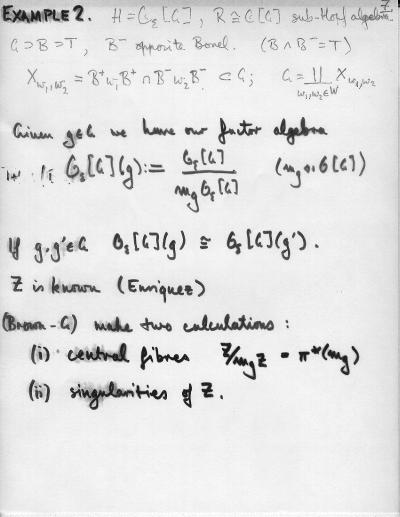 EXAMPLE 2. H = O_ε[G], R ≅ O[G] sub-Hopf algebra. 7.
G ⊃ B ⊃ T, B⁻ opposite Borel. (B ∩ B⁻ = T)
X_{w₁,w₂} = B⁺w₁B⁺ ∩ B⁻w₂B⁻ ⊂ G; G = ∐_{w₁,w₂∈W} X_{w₁,w₂}
Given g∈G we have our factor algebra
O_ε[G](g) := O_ε[G] / m_g O_ε[G] (m_g ◁ O[G])
If g, g'∈G O_ε[G](g) ≅ O_ε[G](g').
Z is known (Enriquez)
(Brown-G) make two calculations:
(i) central fibres Z/m_gZ = π*(m_g)
(ii) singularities of Z.